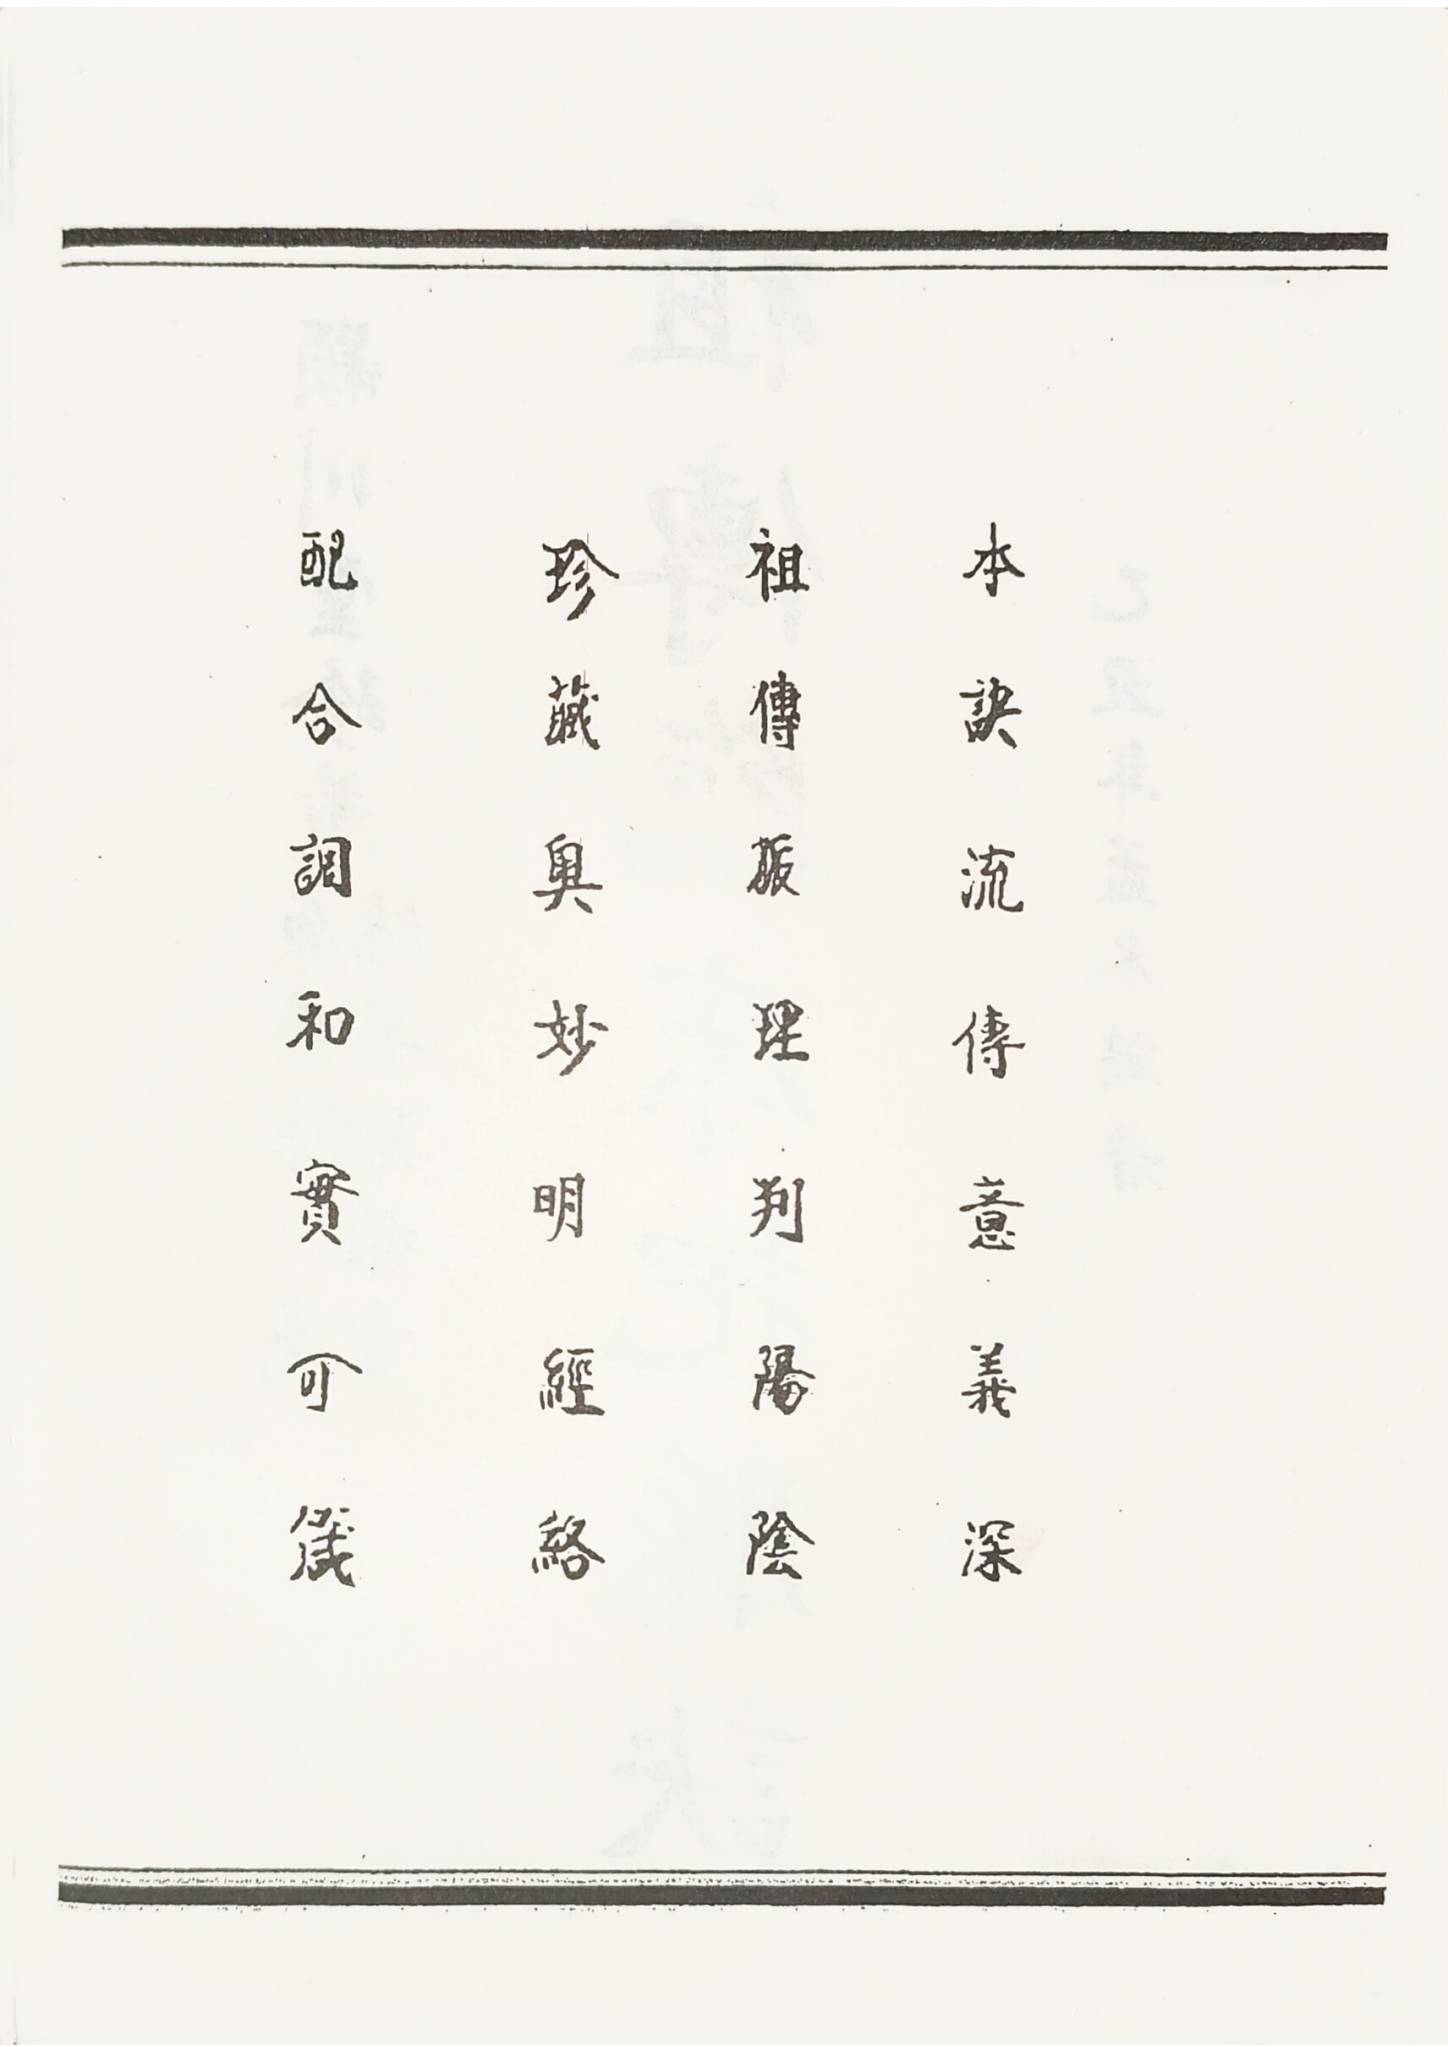 本訣流傳意義深
祖傳脈理判陽陰
珍藏奧妙明經絡
配合調和實可箴